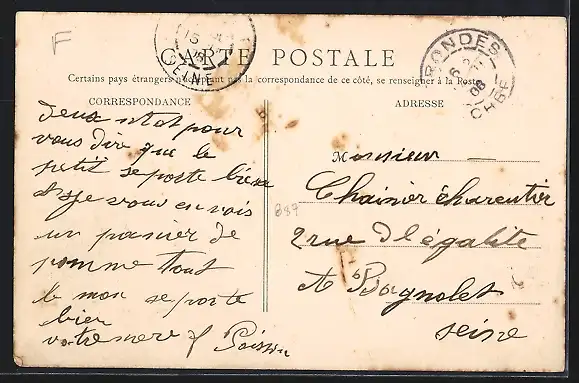 F
SEINE
RONDES
08
CARTE POSTALE
Certains pays étrangers n'acceptant pas la correspondance de ce côté, se renseigner à la Poste
CORRESPONDANCE
deux mot pour
vous dire que le
petit se porte bien
et je vous envois
un panier de
pomme tout
le mon se porte
bien
votre mere f Poisson
ADRESSE
Monsieur
Chainier charentier
2 rue d légalité
A Bagnolet
seine
889